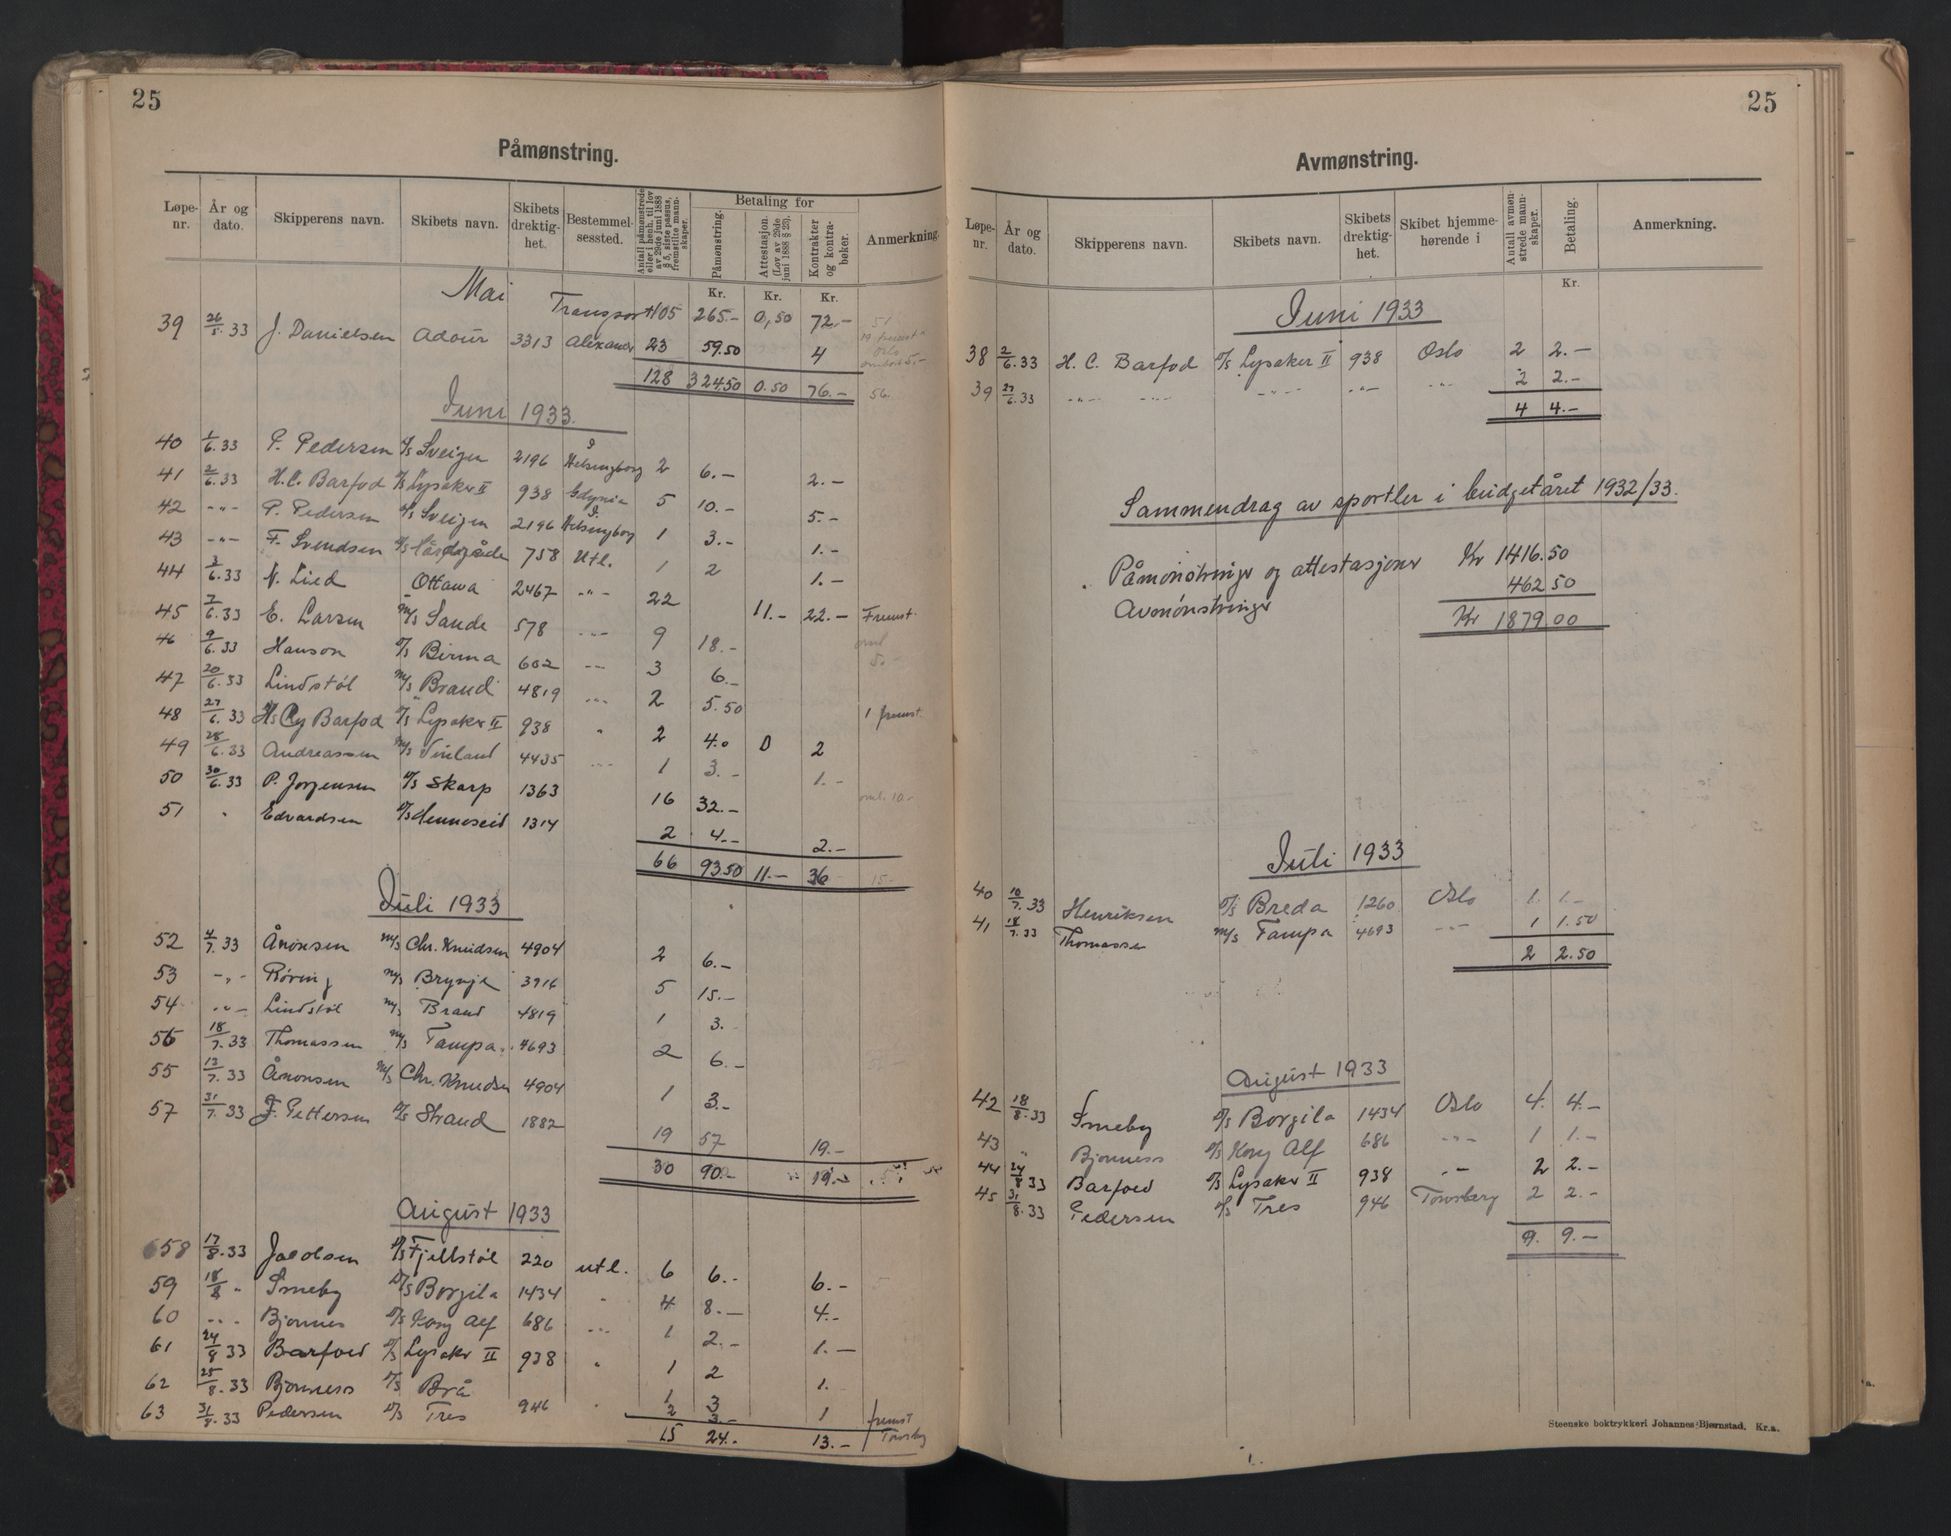 25
Påmønstring.
Løpe-nr. År og dato. Skipperens navn. Skibets navn. Skibets drektighet. Bestemmelsessted. Antall påmønstrede eller i henh. til lov av 29de juni 1888 § 5, siste passus, fremstilte mannskaper. Betaling for Påmønstring. Attestasjon. (Lov av 29de juni 1888 § 23). Kontrakter og kontrabøker. Anmerkning.
Kr. Kr. Kr.
Mai
Transport 105 265.- 0,50 72.- 51
39 26/5.33 J. Danielsen Adour 3313 Alexandr 23 59.50 4 19 fremst. Oslo 5.-
128 324.50 0.50 76.- 56.
Juni 1933.
40 1/6.33 P. Pedersen D/S Sveigen 2196 Helsingborg 2 6.- 2.-
41 2/6.33 H.C. Barfod D/S Lysaker II 938 Gdynia 5 10.- 5.-
42 -"- P. Pedersen D/S Sveigen 2196 Helsingborg 1 3.- 1.-
43 -"- F. Svendsen D/S 758 Utl. 1 2 1.-
44 3/6.33 N. Lied Ottawa 2467 -"- 22 11.- 22.- Fremst.
45 7/6.33 E. Larsen M/S Sande 578 -"- 9 18.-
46 9/6.33 Hanson D/S Birma 602 -"- 3 6.-
47 20/6.33 Lindstøl M/S Brand 4819 -"- 2 5.50 1 fremst.
48 27/6.33 Barfod D/S Lysaker II 938 " 2 4.0 0 2
49 28/6.33 Andreassen M/S Vinland 4435 -"- 1 3.- 1.-
50 30/6.33 P. Jorgensen D/S Skarp 1363 16 32.- oml. 10.-
51 " Edvardsen D/S Henneseid 1314 2 4.- 2.-
66 93.50 11.- 36 15.-
Juli 1933
52 4/7.33 Ånonsen M/S Chr. Knudsen 4904 2 6.-
53 -"- Røring M/S Brynje 3916 5 15.-
54 -"- Lindstøl M/S Brand 4819 1 3.-
56 18/7.33 Thomassen M/S Tampa 4693 2 6.-
55 12/7.33 Ånonsen M/S Chr. Knudsen 4904 1 3.-
57 31/7.33 J. Pettersen D/S Strand 1882 19 57 19.-
30 90.- 19.-
August 1933
58 17/8.33 Jacobsen D/S Fjellstøl 220 utl. 6 6.- 6.-
59 18/8 " Smeby D/S Borgila 1434 " 4 8.- 4.-
60 -"- Bjonnes D/S Kong Alf 686 -"- 1 2.- 1.-
61 24/8 33 Barfoed D/S Lysaker II 938 " 1 2 1.
62 25/8.33 Bjonness D/S Brå 1 3 1
63 31/8.33 Pedersen D/S Tres 946 " 2 3.- fremst Tønsberg
15 24.- 13.-
25
Avmønstring.
Løpe-nr. År og dato. Skipperens navn. Skibets navn. Skibets drektighet. Skibet hjemmehørende i Antall avmønstrede mannskaper. Betaling. Anmerkning.
Kr.
Juni 1933
38 2/6.33 H. C. Barfod D/S Lysaker II 938 Oslo 2 2.-
39 27/6.33 -"- -"- -"- -"- -"- 2 2.-
4 4.-
Sammendrag av sportler i budgetåret 1932/33.
Påmønstringer og attestasjoner Kr 1416.50
Avmønstringer 462 50
Kr 1879.00
Juli 1933
40 10/7.33 Henriksen D/S Breda 1260 Oslo 1. 1.-
41 18/7.33 Thomassen M/S Tampa 4693 -"- 1 1.50
2 2.50
August 1933
42 18/8.33 Smeby D/S Borgila 1434 Oslo 4. 4.-
43 " Bjonness D/S Kong Alf 686 -"- 1 1.-
44 24/8 33 Barfoed D/S Lysaker II 938 -"- 2 2.-
45 31/8.33 Pedersen D/S Tres 946 Tønsberg 2 2.-
9. 9.-
Steenske boktrykkeri Johannes Bjørnstad. Kr.a.